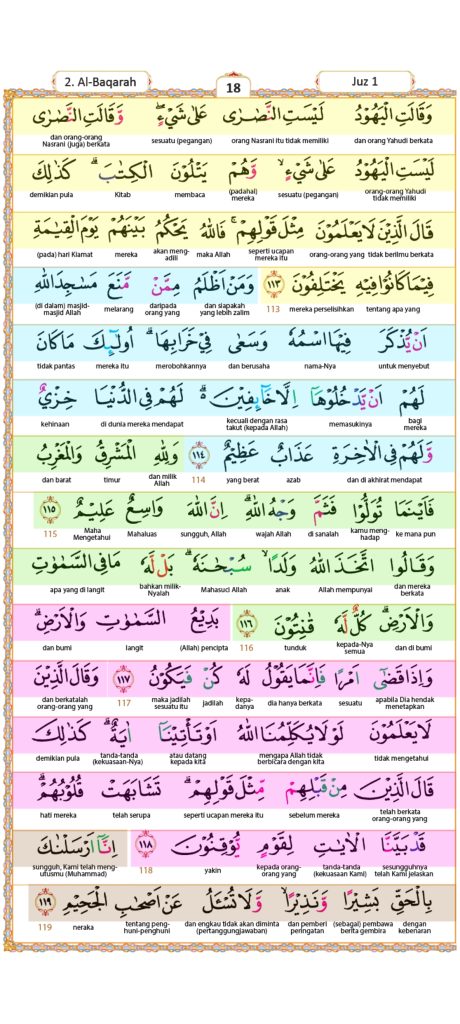 2. Al-Baqarah
18
Juz 1
وَقَالَتِ الْيَهُوْدُ لَيْسَتِ النَّصٰرٰى عَلٰى شَيْءٍۖ وَّقَالَتِ النَّصٰرٰى
dan orang Yahudi berkata orang Nasrani itu tidak memiliki sesuatu (pegangan) dan orang-orang Nasrani (juga) berkata
لَيْسَتِ الْيَهُوْدُ عَلٰى شَيْءٍۙ وَّهُمْ يَتْلُوْنَ الْكِتٰبَۗ كَذٰلِكَ
orang-orang Yahudi tidak memiliki sesuatu (pegangan) (padahal) mereka membaca Kitab demikian pula
قَالَ الَّذِيْنَ لَا يَعْلَمُوْنَ مِثْلَ قَوْلِهِمْۚ فَاللّٰهُ يَحْكُمُ بَيْنَهُمْ يَوْمَ الْقِيٰمَةِ
berkata orang-orang yang tidak berilmu seperti ucapan mereka itu maka Allah akan mengadili mereka (pada) hari Kiamat
فِيْمَا كَانُوْا فِيْهِ يَخْتَلِفُوْنَ ١١٣ وَمَنْ اَظْلَمُ مِمَّنْ مَّنَعَ مَسٰجِدَ اللّٰهِ
tentang apa yang mereka perselisihkan 113 dan siapakah yang lebih zalim daripada orang yang melarang (di dalam) masjid-masjid Allah
اَنْ يُّذْكَرَ فِيْهَا اسْمُهٗ وَسَعٰى فِيْ خَرَابِهَاۗ اُولٰۤىِٕكَ مَا كَانَ
untuk menyebut nama-Nya dan berusaha merobohkannya mereka itu tidak pantas
لَهُمْ اَنْ يَّدْخُلُوْهَآ اِلَّا خَاۤىِٕفِيْنَۗ لَهُمْ فِى الدُّنْيَا خِزْيٌ
bagi mereka memasukinya kecuali dengan rasa takut (kepada Allah) di dunia mereka mendapat kehinaan
وَّلَهُمْ فِى الْاٰخِرَةِ عَذَابٌ عَظِيْمٌ ١١٤ وَلِلّٰهِ الْمَشْرِقُ وَالْمَغْرِبُ
dan di akhirat mendapat azab yang berat 114 dan milik Allah timur dan barat
فَاَيْنَمَا تُوَلُّوْا فَثَمَّ وَجْهُ اللّٰهِۗ اِنَّ اللّٰهَ وَاسِعٌ عَلِيْمٌ ١١٥
ke mana pun kamu menghadap di sanalah wajah Allah sungguh, Allah Mahaluas Maha Mengetahui 115
وَقَالُوا اتَّخَذَ اللّٰهُ وَلَدًاۙ سُبْحٰنَهٗۗ بَلْ لَّهٗ مَا فِى السَّمٰوٰتِ
dan mereka berkata Allah mempunyai anak Mahasuci Allah bahkan milik-Nyalah apa yang di langit
وَالْاَرْضِۗ كُلٌّ لَّهٗ قٰنِتُوْنَ ١١٦ بَدِيْعُ السَّمٰوٰتِ وَالْاَرْضِۗ
dan di bumi kepada-Nya semua tunduk 116 (Allah) pencipta langit dan bumi
وَاِذَا قَضٰٓى اَمْرًا فَاِنَّمَا يَقُوْلُ لَهٗ كُنْ فَيَكُوْنُ ١١٧ وَقَالَ الَّذِيْنَ
apabila Dia hendak menetapkan sesuatu dia hanya berkata kepadanya jadilah maka jadilah sesuatu itu 117 dan berkatalah orang-orang yang
لَا يَعْلَمُوْنَ لَوْلَا يُكَلِّمُنَا اللّٰهُ اَوْ تَأْتِيْنَآ اٰيَةٌۗ كَذٰلِكَ
tidak mengetahui mengapa Allah tidak berbicara dengan kita atau datang kepada kita tanda-tanda (kekuasaan-Nya) demikian pula
قَالَ الَّذِيْنَ مِنْ قَبْلِهِمْ مِّثْلَ قَوْلِهِمْۘ تَشَابَهَتْ قُلُوْبُهُمْۗ
telah berkata orang-orang yang sebelum mereka seperti ucapan mereka itu telah serupa hati mereka
قَدْ بَيَّنَّا الْاٰيٰتِ لِقَوْمٍ يُّوْقِنُوْنَ ١١٨ اِنَّآ اَرْسَلْنٰكَ
sesungguhnya telah Kami jelaskan tanda-tanda (kekuasaan Kami) kepada orang-orang yang yakin 118 sungguh, Kami telah mengutusmu (Muhammad)
بِالْحَقِّ بَشِيْرًا وَّنَذِيْرًاۙ وَّلَا تُسْـَٔلُ عَنْ اَصْحٰبِ الْجَحِيْمِ ١١٩
dengan kebenaran (sebagai) pembawa berita gembira dan pemberi peringatan dan engkau tidak akan diminta (pertanggungjawaban) tentang penghuni-penghuni neraka 119